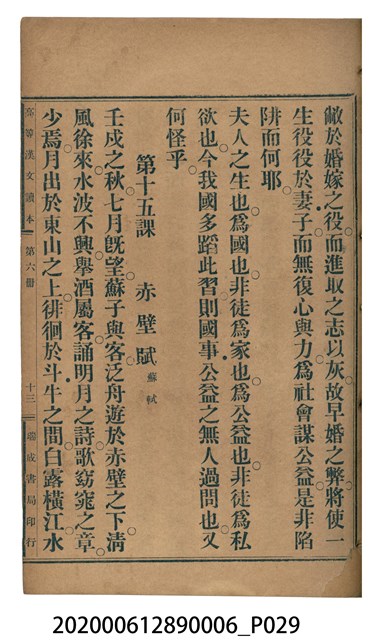 敝於婚嫁之役而進取之志以灰故早婚之弊將使一
生役役於妻子而無復心與力為社會謀公益是非陷
阱而何耶
夫人之生也為國也非徒為家也為公益也非徒為私
欲也今我國多蹈此習則國事公益之無人過問也又
何怪乎
第十五課 赤壁賦 蘇軾
壬戌之秋七月既望蘇子與客泛舟遊於赤壁之下清
風徐來水波不興舉酒屬客誦明月之詩歌窈窕之章
少焉月出於東山之上徘徊於斗牛之間白露橫江水
高等漢文讀本 第六冊 十三 瑞成書局印行
202000612890006_P029